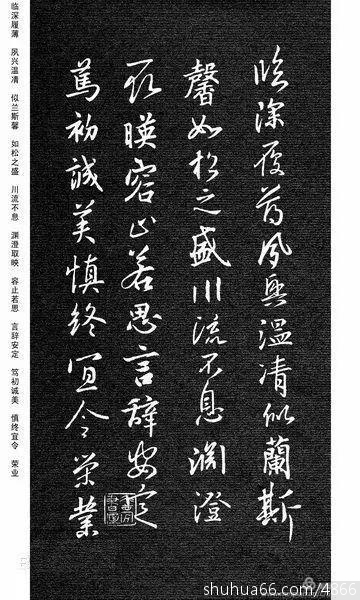 臨深履薄夙興溫凊似蘭斯
馨如松之盛川流不息淵澄
取暎容止若思言辭安定
篤初誠美慎終宜令榮業
临深履薄 夙兴温凊 似兰斯馨 如松之盛 川流不息 渊澄取映 容止若思 言辞安定 笃初诚美 慎终宜令 荣业
shuhua66.com/4866